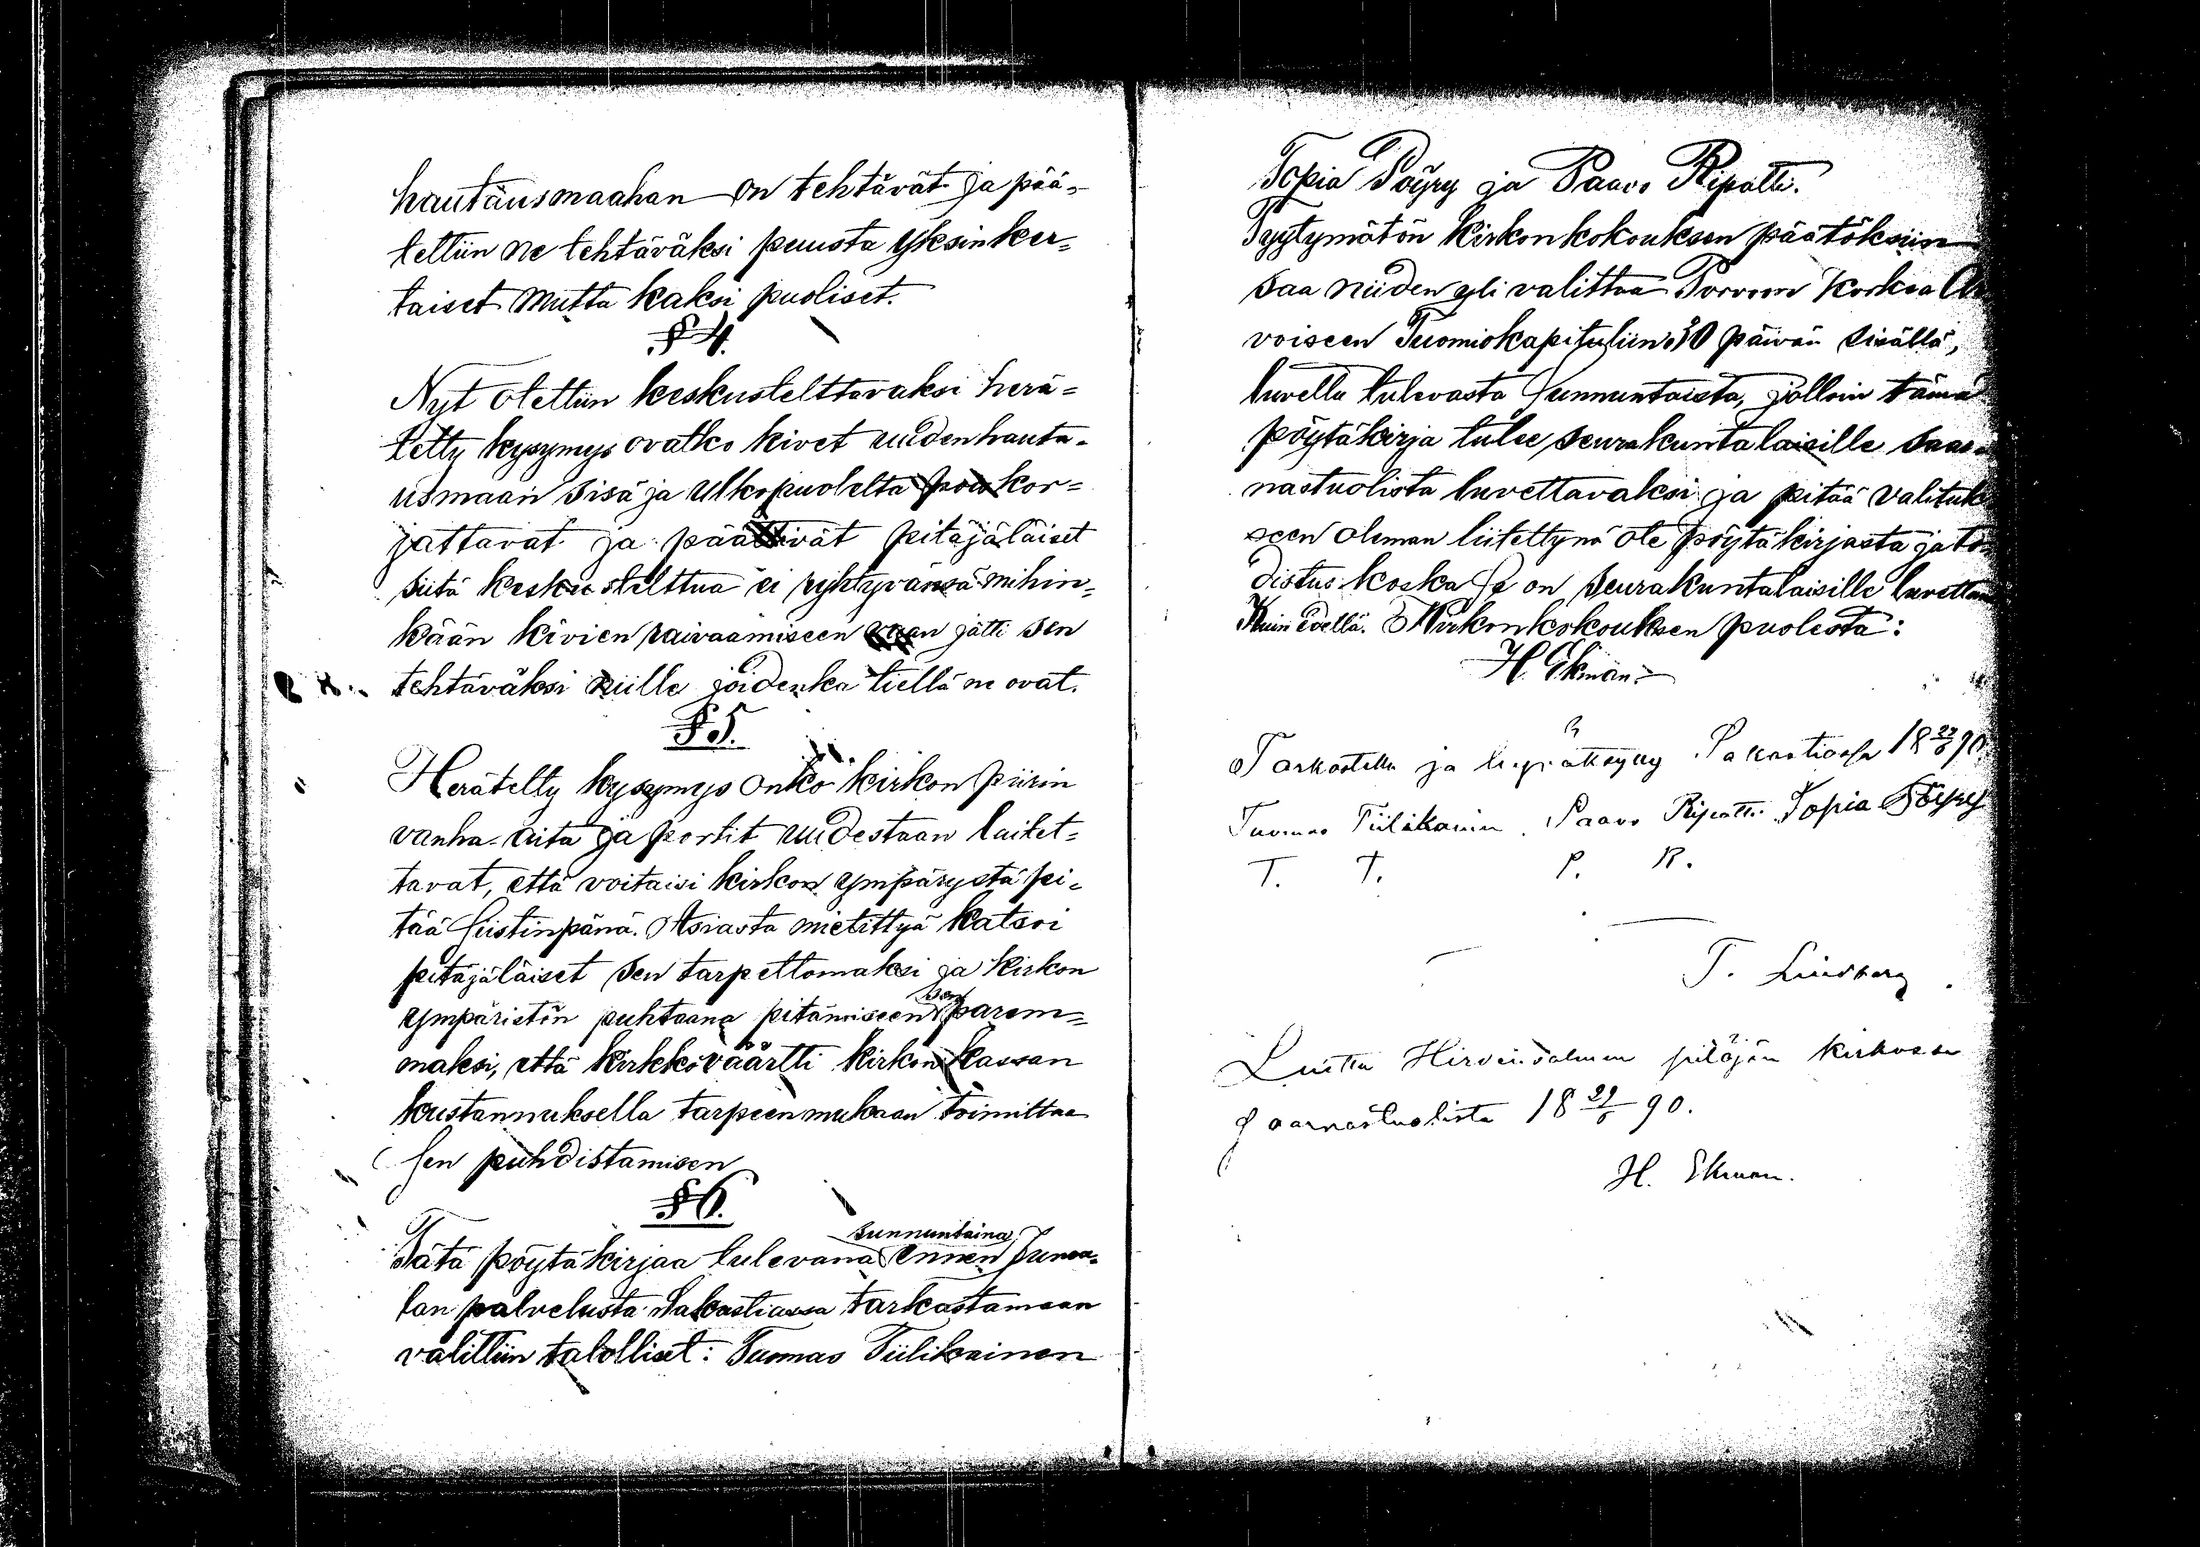 hautausmaahan on tehtävät ja pää-
tettiin ne tehtäväksi puusta yksinker-
taiset mutta kaksi puoliset.
§ 4.
Nyt otettiin keskustelttavaksi herä-
tetty kysymys ovatko kivet uuden hauta-
usmaan sisä ja ulkopuolelta kor-
jattavat ja päättivät pitäjäläiset
siitä keskustelttua ei ryhtyvänsä mihin-
kään kivien raivaamiseen vaan jätti sen
tehtäväksi niille joidenka tiellä ne ovat.
§ 5.
Herätelty kysymys onko kirkon piirin
vanha aita ja portit uudestaan laitet-
tavat, että voitaisi kirkon ympärystä pi-
tää siistinpänä. Asiasta mietittyä katsoi
pitäjäläiset sen tarpettomaksi ja kirkon
ympäristön puhtaana pitämiseen sen parem-
maksi, että kirkkoväärtti kirkon kassan
kustannuksella tarpeen mukaan toimittaa
sen puhdistamisen
§ 6.
sunnuntaina
Tätä pöytäkirjaa tulevana ennen Juma-
lan palvelusta Sakastiassa tarkastamaan
valittiin talolliset: Tuomas Tiilikainen
Topia Pöyry ja Paavo Ripatti.
Tyytymätön Kirkonkokouksen päätöksiin
saa niiden yli valittaa Porvoon Korkea Ar
voiseen Tuomiokapituliin 30 päivän sisällä,
luvettu tulevasta sunnuntaista, jolloin tämä
pöytäkirja tulee seurakuntalaisille saar-
nastuolista luvettavaksi ja pitää valituk
seen oleman liitettynä ote pöytäkirjasta ja to-
distus koska se on seurakuntalaisille luvettu
Kuin edellä. Kirkonkokouksen puolesta:
H. Ekman.
Tarkastettu ja hyväksytty Sakastiassa 18 22/6 90.
Tuomas Tiilikainen. Paavo Ripatti. Topia Pöyry
T. T. P. R.
T. Lindberg.
Luettu Hirvensalmen pitäjän kirkossa
saarnastuolista 18 29/6 90.
H. Ekman.